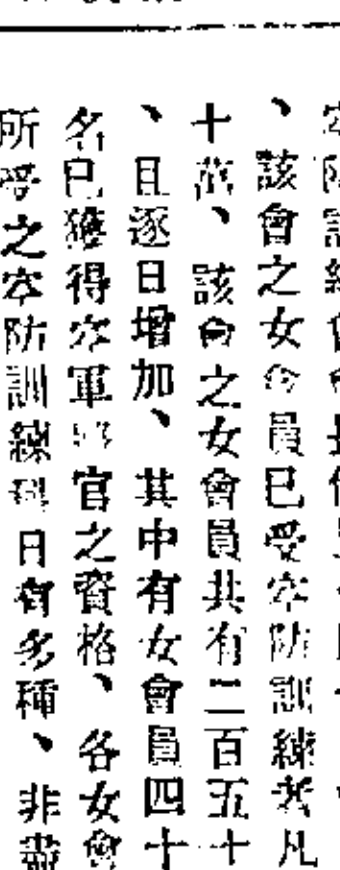 空防訓練會會長
、該會之女會員已受空防訓練者凡
十萬、該會之女會員共有二百五十
、且逐日增加、其中有女會員四十
名已獲得空軍官之資格、各女會
所受之空防訓練科目有多種、非盡